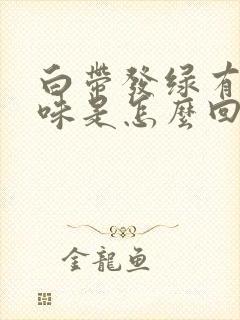 白帶發绿有
味是怎麼回
金龍鱼